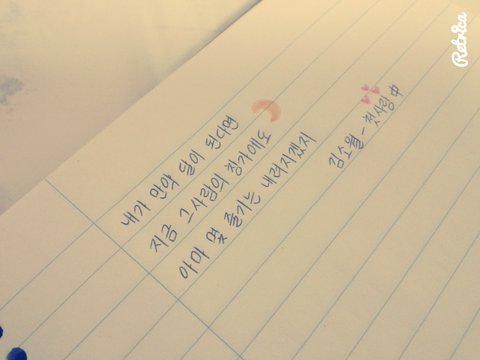 내가 만약 달이 된다면
지금 그사람의 창가에도
아마 몇 줄기는 내려지겠지
김소월 - 첫사랑 中
Retrica